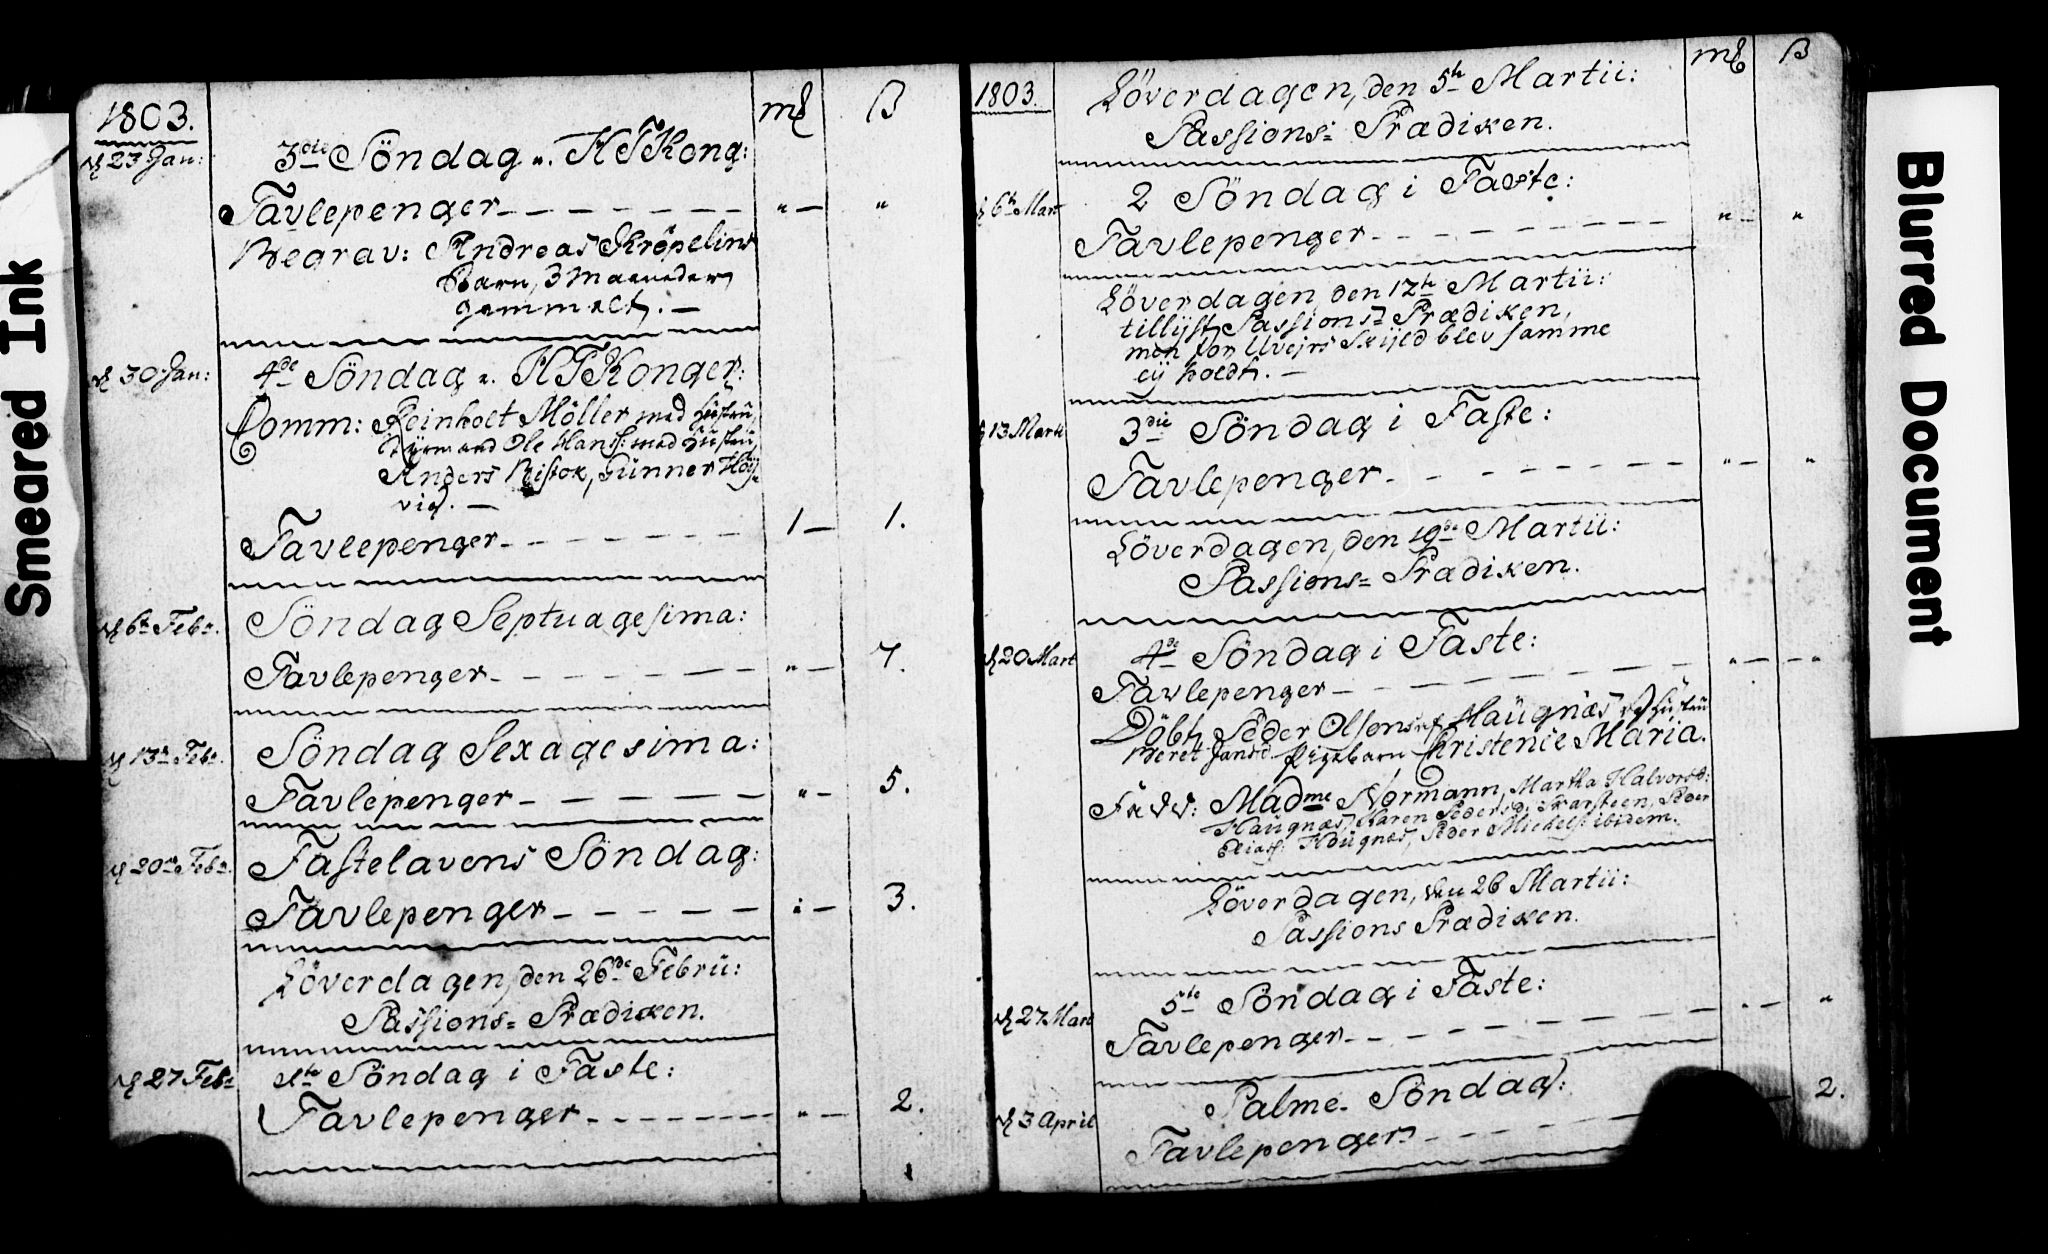 Smeared Ink
1803.
mƷ ß
d 23 Jan:
3die Söndag a. H3Kong:
Tavlepenger
" — "
Begrav: Andreas Kröpelins
Barn, 3 Maaneder
gammelt. —
d 30 Jan:
4de Söndag a. H3Konger:
Comm: Reinholt Möller med Hüstrü,
Ole Hans: med Hüstrü,
Anders Ristok, Günner Höy=
vig. —
Tavlepenger
1 — 1.
d 6te Febr.
Söndag Septuagesima:
Tavlepenger
" — 7.
d 13de Febr.
Söndag Sexagesima:
Tavlepenger
" — 5.
d 20de Febr.
Fastelavens Söndag:
Tavlepenger
: — 3.
Löverdagen, den 26de Febrü:
Passions= Prædiken.
d 27 Febr
1te Söndag i Faste:
Tavlepenger
" — 2.
1803.
mƷ ß
Löverdagen, den 5te Martii:
Passions= Prædiken.
d 6te Mart
2 Söndag i Faste:
Tavlepenger
" — "
Löverdagen, den 12te Martii:
tillÿst Passions= Prædiken,
men for Uvejrs Skÿld blev samme
eÿ holdt. —
d 13 Marti
3die Söndag i Faste:
Tavlepenger
" — "
Löverdagen, den 19de Martii:
Passions= Prædiken.
d 20 Mart
4de Söndag i Faste:
Tavlepenger
" — "
Döbt Peder Olsens af Haügnæs og Hüstrü
Beret Jansd. Pigebarn Christenie Maria.
Fadd: Madme Normann, Martha Halvorsd:
Haügnæs, Karen Pedersd. Svarsteen, Peder
Elias: Haügnæs, Peder Michels: ibidem.
Löverdagen, den 26 Martii:
Passions Prædiken.
d 27 Mart
5te Söndag i Faste:
Tavlepenger
" — "
d 3 April
Palme- Söndag:
Tavlepenger
— 2.
Blurred Document